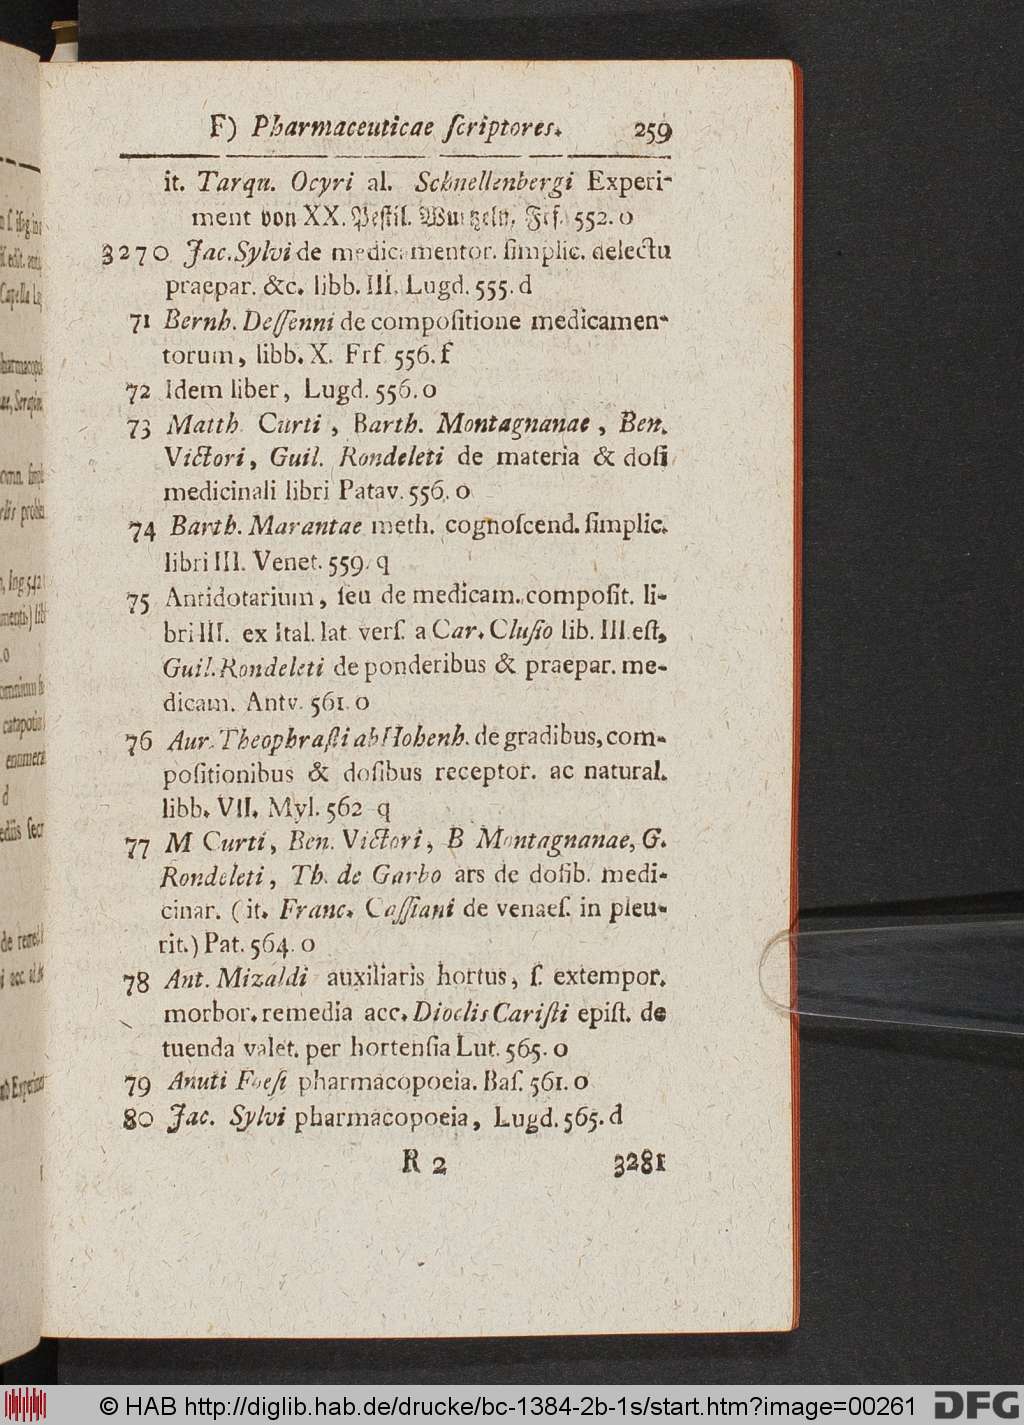 F) Pharmaceuticae ſcriptores. 259
it. Tarqu. Ocyri al. Schnellenbergi Experi-
ment von XX. Peſtil. Wurtzeln. Frf. 552. o
3270 Jac. Sylvi de medicamentor. ſimplic. delectu
praepar. &c. libb. III. Lugd. 555. d
71 Bernh. Deſſenni de compoſitione medicamen-
torum, libb. X. Frf 556. f
72 Idem liber, Lugd. 556. o
73 Matth. Curti, Barth. Montagnanae, Ben.
Victori, Guil. Rondeleti de materia & doſi
medicinali libri Patav. 556. o
74 Barth. Marantae meth. cognoſcend. ſimplic.
libri III. Venet. 559. q
75 Antidotarium, ſeu de medicam. compoſit. li-
bri III. ex Ital. lat. verſ. a Car. Cluſio lib. III eſt,
Guil. Rondeleti de ponderibus & praepar. me-
dicam. Antv. 561. o
76 Aur. Theophraſti ab Hohenh. de gradibus, com-
poſitionibus & doſibus receptor. ac natural.
libb. VII. Myl. 562 q
77 M Curti, Ben. Victori, B Montagnanae, G.
Rondeleti, Th. de Garbo ars de doſib. medi-
cinar. (it. Franc. Caſſiani de venaeſ. in pleu-
rit.) Pat. 564. o
78 Ant. Mizaldi auxiliaris hortus, ſ. extempor.
morbor. remedia acc. Dioclis Cariſti epiſt. de
tuenda valet. per hortenſia Lut. 565. o
79 Anuti Foeſi pharmacopoeia. Baſ. 561. o
80 Jac. Sylvi pharmacopoeia, Lugd. 565. d
R 2 3281
© HAB http://diglib.hab.de/drucke/bc-1384-2b-1s/start.htm?image=00261 DFG